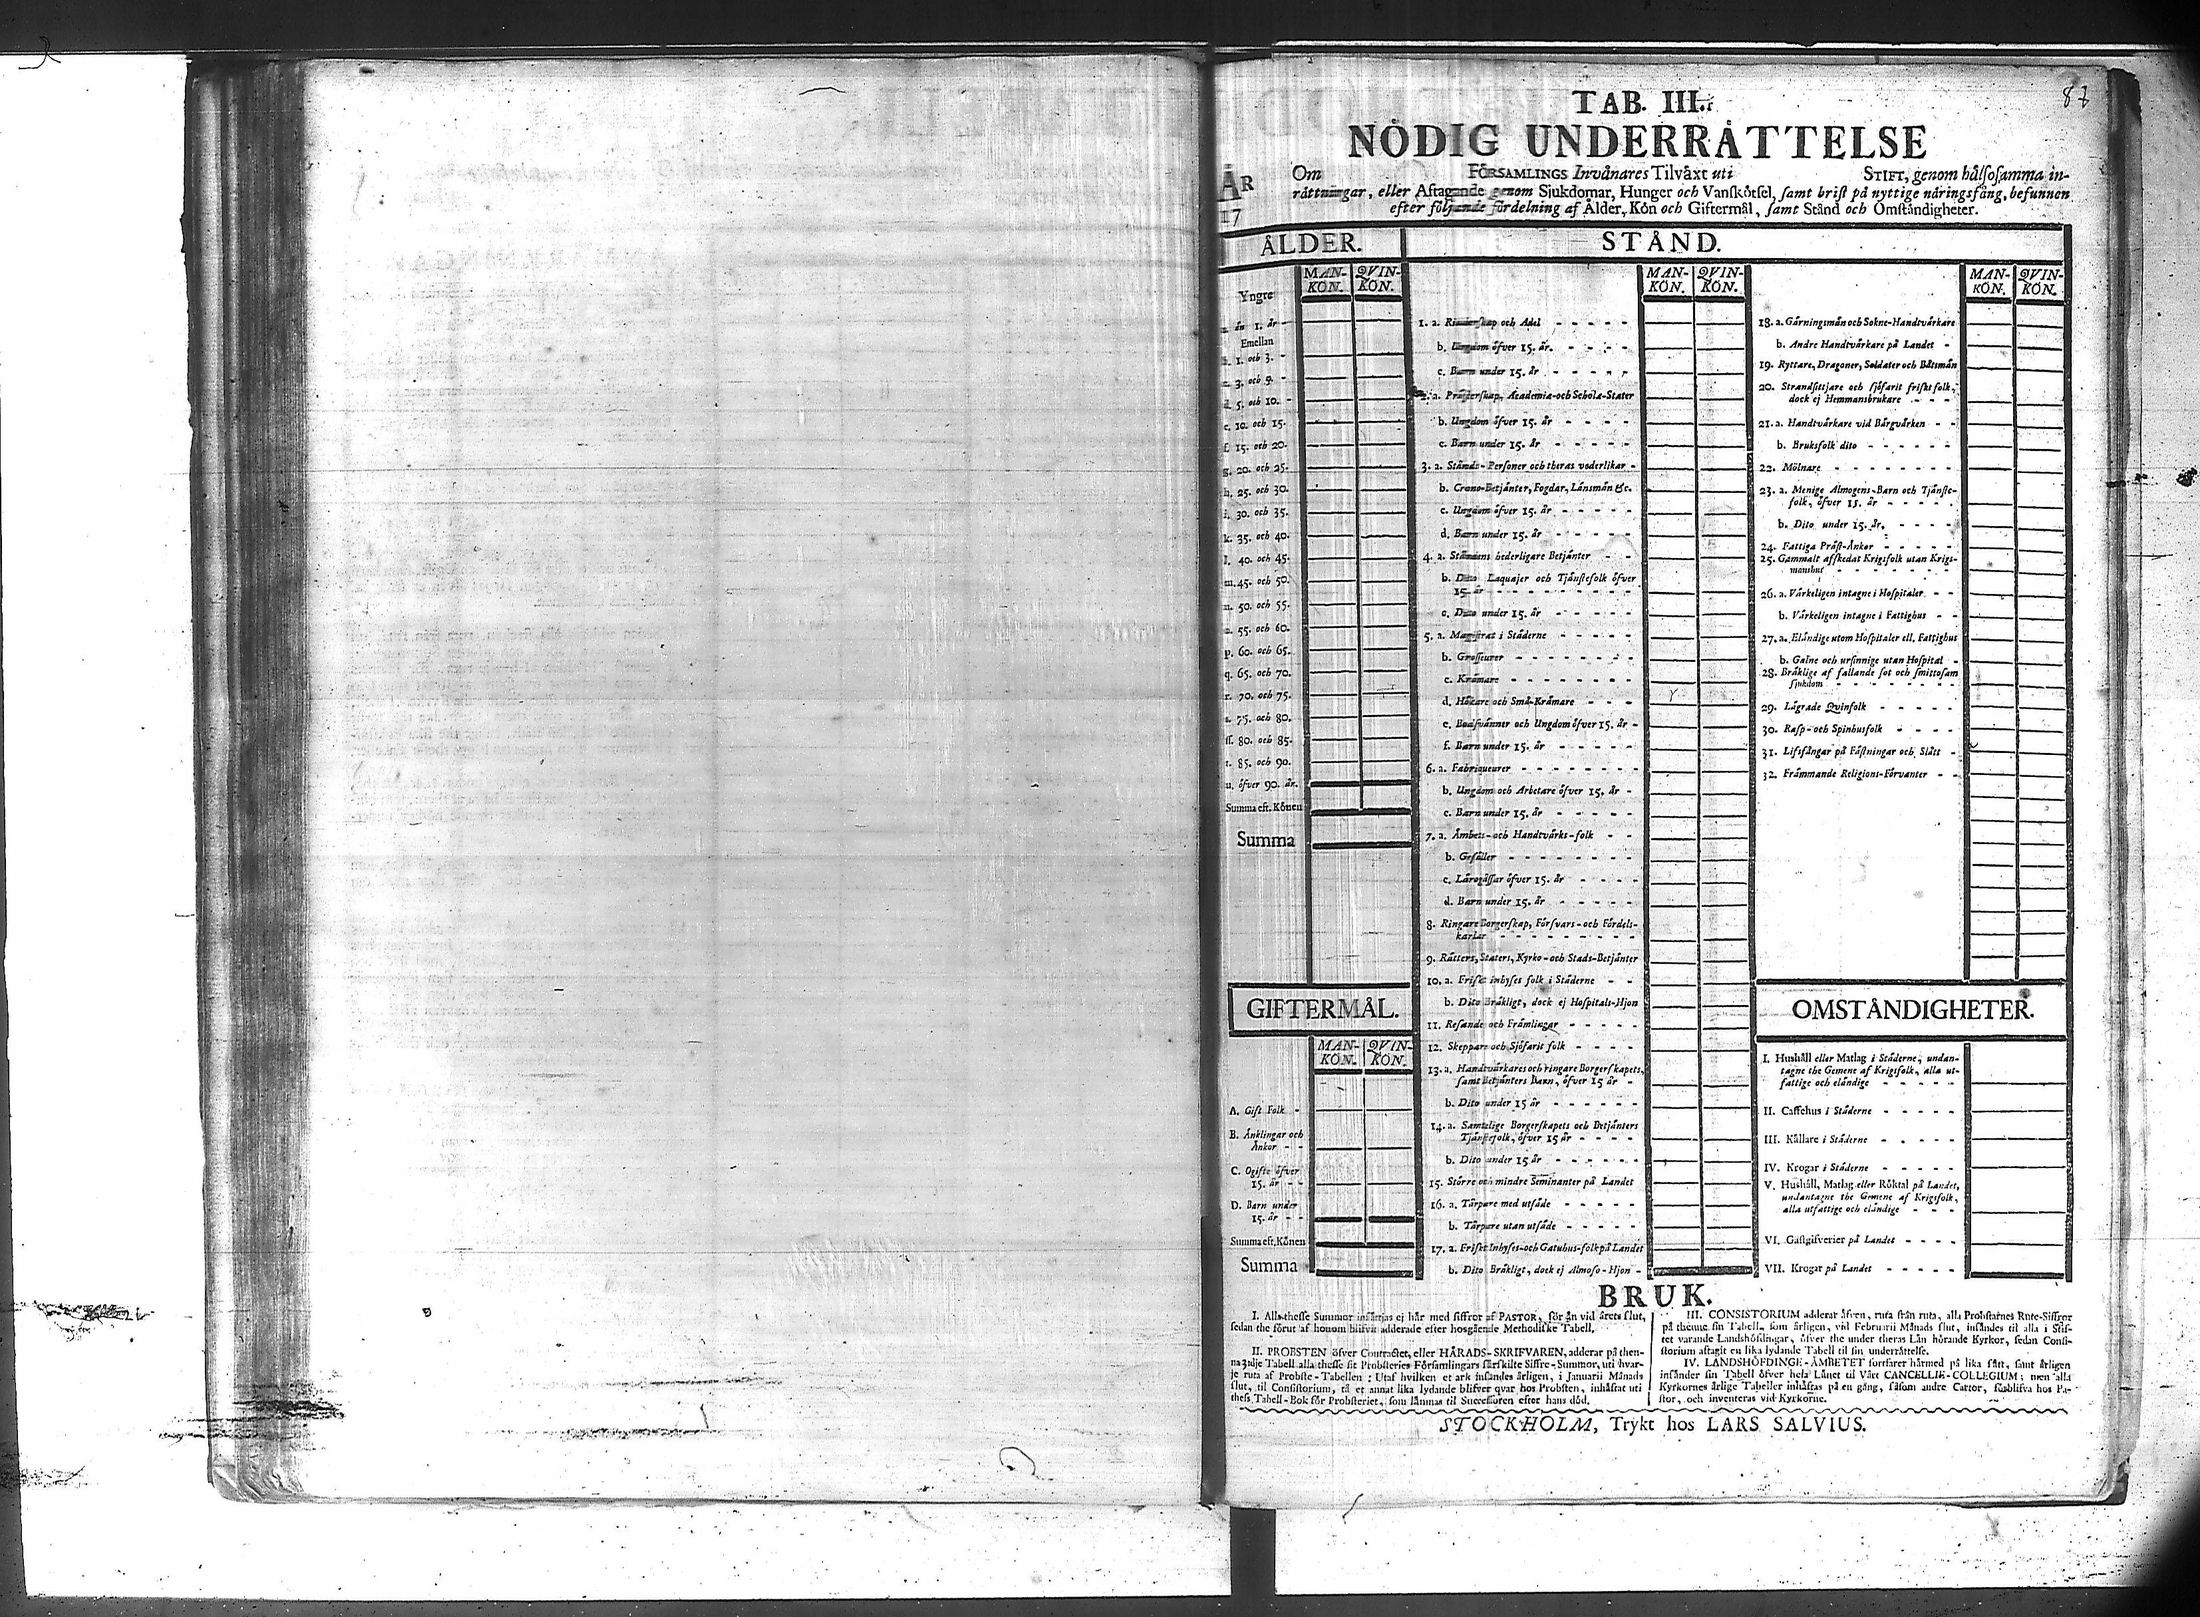 87
TAB. III.
NÖDIG UNDERRÅTTELSE
ÅR
17
Om FÖRSAMLINGS Invånares Tilväxt uti STIFT, genom hålsosamma in-
råttningar, eller Aftagande genom Sjukdomar, Hunger och Vanskötsel, samt brist på nyttige näringsfång, befunnen
efter följande fördelning af Ålder, Kön och Giftermål, samt Stånd och Omståndigheter.
ÅLDER.
MAN-KÖN. QVIN-KÖN.
Yngre
än 1. år
Emellan
1. och 3.
3. och 5.
d. 5. och 10.
e. 10. och 15.
f. 15. och 20.
g. 20. och 25.
h. 25. och 30.
i. 30. och 35.
k. 35. och 40.
l. 40. och 45.
m. 45. och 50.
n. 50. och 55.
o. 55. och 60.
p. 60. och 65.
q. 65. och 70.
r. 70. och 75.
s. 75. och 80.
ff. 80. och 85.
t. 85. och 90.
u. öfver 90. år.
Summa eft. Könen
Summa
GIFTERMÅL.
MAN-KÖN. QVIN-KÖN.
A. Gift Folk
B. Änklingar och
Änkor
C. Ogifte öfver
15. år
D. Barn under
15. år
Summa eft. Könen
Summa
STÅND.
MAN-KÖN. QVIN-KÖN.
1. a. Ridderskap och Adel
b. Ungdom öfver 15. år.
c. Barn under 15. år
2. a. Prästerskap, Academiæ-och Scholæ-Stater
b. Ungdom öfver 15. år
c. Barn under 15. år
3. a. Stånds-Personer och theras vederlikar
b. Crono-Betjänter, Fogdar, Länsmän &c.
c. Ungdom öfver 15. år
d. Barn under 15. år
4. a. Ståndens hederligare Betjänter
b. Dito Laquajer och Tjänstefolk öfver
15. år
c. Dito under 15. år
5. a. Magistrat i Städerne
b. Grosseurer
c. Krämare
d. Hökare och Små-Krämare
e. Bodsvänner och Ungdom öfver 15. år
f. Barn under 15. år
6. a. Fabriqueurer
b. Ungdom och Arbetare öfver 15. år
c. Barn under 15. år
7. a. Ämbets-och Handtvärks-folk
b. Gesäller
c. Lärogåssar öfver 15. år
d. Barn under 15. år
8. Ringare Borgerskap, Försvars-och Fördels-
karlar
9. Rätters, Staters, Kyrko-och Stads-Betjänter
10. a. Friskt inhyses folk i Städerne
b. Dito Bräkligt, dock ej Hospitals-Hjon
11. Resande och Främlingar
12. Skeppare och Sjöfarit folk
13. a. Handtvärkares och ringare Borgerskapets,
samt Betjänters Barn, öfver 15 år
b. Dito under 15 år
14. a. Samtelige Borgerskapets och Betjänters
Tjänstefolk, öfver 15 år
b. Dito under 15 år
15. Större och mindre Seminanter på Landet
16. a. Tårpare med utsäde
b. Tårpare utan utsäde
17. a. Friskt Inhyses-och Gatuhus-folk på Landet
b. Dito Bräkligt, dock ej Almoso-Hjon
MAN-KÖN. QVIN-KÖN.
18. a. Gärningsmän och Sokne-Handtvärkare
b. Andre Handtvärkare på Landet
19. Ryttare, Dragoner, Soldater och Båtsmän
20. Strandsittjare och sjöfarit friskt folk,
dock ej Hemmansbrukare
21. a. Handtvärkare vid Bärgvärken
b. Bruksfolk dito
22. Mölnare
23. a. Menige Almogens-Barn och Tjänste-
folk, öfver 15. år
b. Dito under 15. år.
24. Fattiga Präst-Änkor
25. Gammalt affkedat Krigsfolk utan Krigs-
manshus
26. a. Värkeligen intagne i Hospitaler
b. Värkeligen intagne i Fattighus
27. a. Eländige utom Hospitaler ell. Fattighus
b. Galne och ursinnige utan Hospital
28. Bräklige af fallande sot och smittosam
sjukdom
29. Lägrade Qvinfolk
30. Rasp-och Spinhusfolk
31. Lifsfångar på Fästningar och Slått
32. Främmande Religions-Förvanter
OMSTÅNDIGHETER.
I. Hushåll eller Matlag i Städerne, undan-
tagne the Gemene af Krigsfolk, alla ut-
fattige och eländige
II. Caffehus i Städerne
III. Källare i Städerne
IV. Krogar i Städerne
V. Hushåll, Matlag eller Röktal på Landet,
undantagne the Gemene af Krigsfolk,
alla utfattige och eländige
VI. Gästgifverier på Landet
VII. Krogar på Landet
BRUK.
I. Alla thesse Summor insättjas ej här med siffror af PASTOR, för än vid årets slut,
sedan the förut af honom blifvit adderade efter hosgående Methodiske Tabell.
II. PROBSTEN öfver Contractet, eller HÄRADS-SKRIFVAREN, adderar på then-
na 3dje Tabell alla thesse sit Probsteries Församlingars särskilte Siffre-Summor, uti hvar-
je ruta af Probste-Tabellen: Utaf hvilken et ark insändes årligen, i Januarii Månads
slut, til Consistorium, tå et annat lika lydande blifver qvar hos Probsten, inhäftat uti
thess Tabell-Bok för Probsteriet, som lämnas til Successoren efter hans död.
III. CONSISTORIUM adderar äfven, ruta från ruta, alla Probstarnes Rute-Siffror
på thenne sin Tabell, som årligen, vid Februarii Månads slut, insändes til alla i Stif-
tet varande Landshöfdingar, öfver the under theras Län hörande Kyrkor, sedan Consi-
storium aftagit en lika lydande Tabell til sin underrättelse.
IV. LANDSHÖFDINGE-ÄMBETET fortfarer härmed på lika sätt, samt årligen
insänder sin Tabell öfver hela Länet til Vårt CANCELLIE-COLLEGIUM; men alla
Kyrkornes årlige Tabeller inhäftas på en gång, såsom andre Cartor, såsblifva hos Pa-
stor, och inventeras vid Kyrkorne.
STOCKHOLM, Trykt hos LARS SALVIUS.